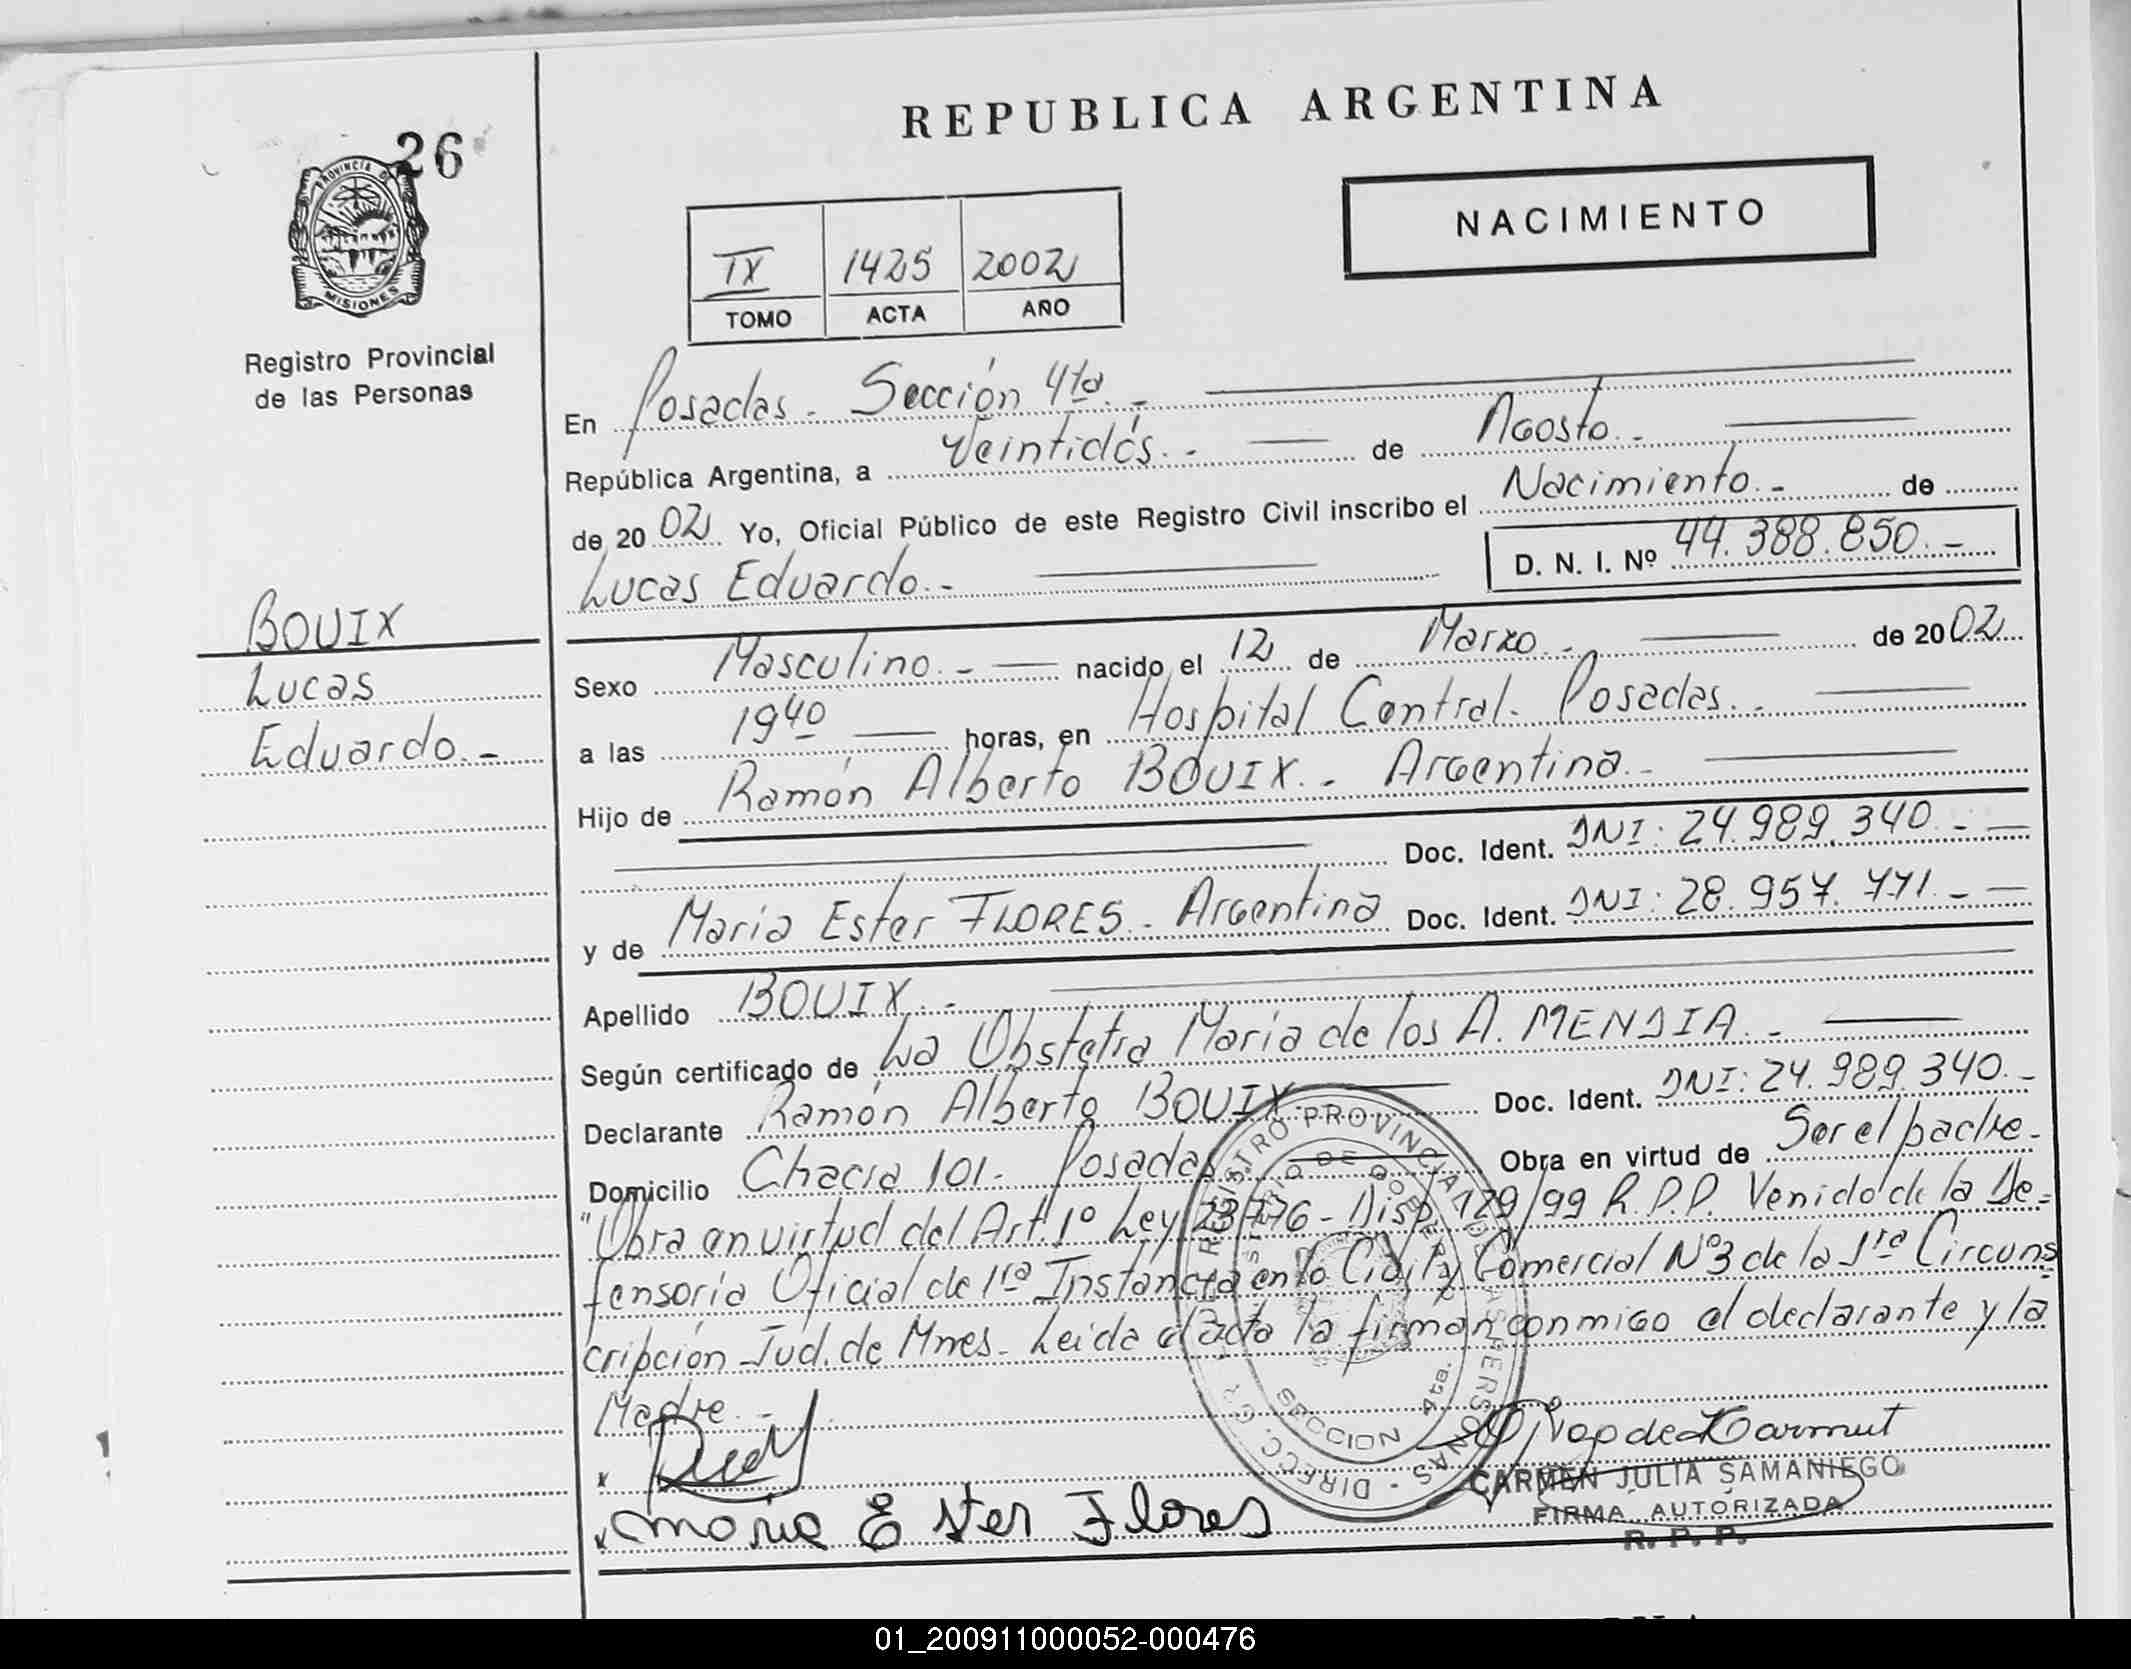 REPUBLICA ARGENTINA
26
PROVINCIA DE
MISIONES
NACIMIENTO
IX 1425 2002
TOMO ACTA AÑO
Registro Provincial
de las Personas
En Posadas - Sección 4ta. -
República Argentina, a Veintidós. - de Agosto. -
de 2002 Yo, Oficial Público de este Registro Civil inscribo el Nacimiento. - de
Lucas Eduardo. - D. N. I. Nº 44.388.850. -
BOUIX
Lucas
Eduardo. -
Sexo Masculino. - nacido el 12 de Marzo. - de 2002
a las 19 40 horas, en Hospital Central. Posadas. -
Hijo de Ramón Alberto BOUIX. - Argentina. -
Doc. Ident. DNI: 24.989.340. -
y de Maria Ester FLORES. - Argentina Doc. Ident. DNI: 28.957.771. -
Apellido BOUIX. -
Según certificado de La Obstetra Maria de los A. MENDIA. -
Declarante Ramón Alberto BOUIX Doc. Ident. DNI: 24.989.340. -
Domicilio Chacra 101. Posadas. Obra en virtud de Ser el padre. -
"Obra en virtud del Art. 1º Ley 23776 - Disp. 129/99 R.P.P. Venido de la De=
fensoria Oficial de 1ra Instancia en lo Civil y Comercial Nº3 de la 1ra Circuns
cripción Jud. de Mnes. Leida el acta la firman conmigo el declarante y la
Madre. -
x
x maria Ester Flores
DIRECC. GR. REGISTRO PROVINCIAL DE LAS PERSONAS
SECCION 4ta.
CARMEN JULIA SAMANIEGO
FIRMA AUTORIZADA
R. P. P.
01_200911000052-000476